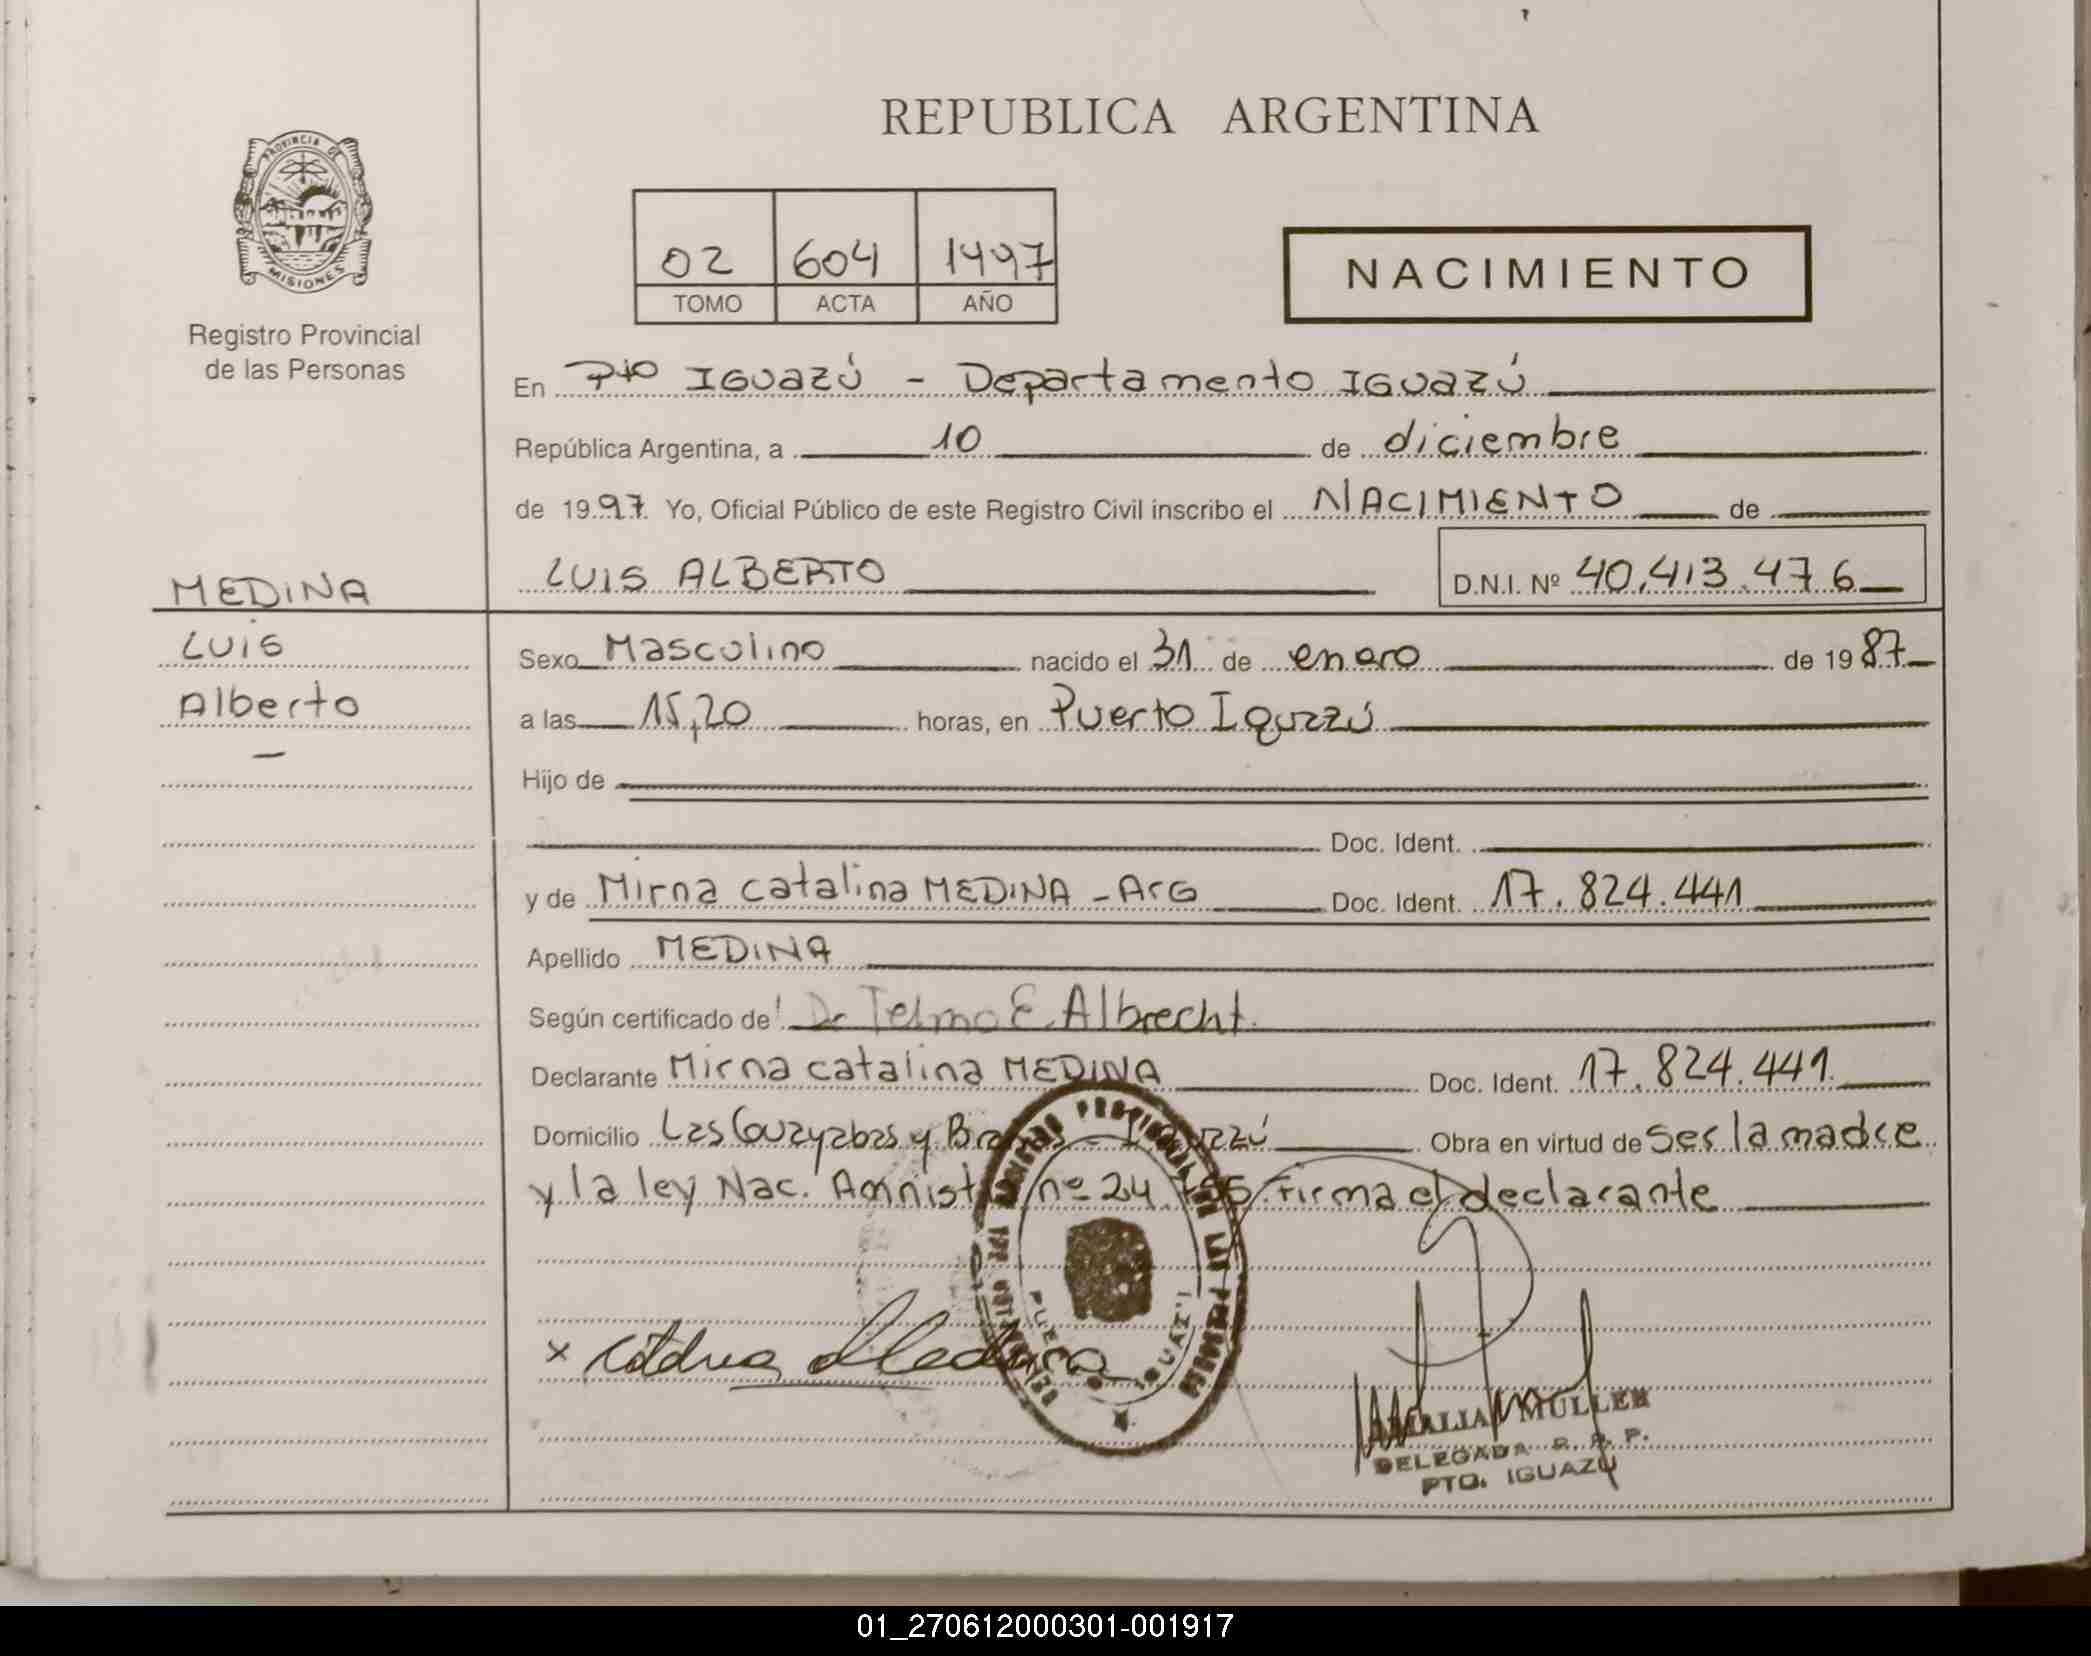 REPUBLICA ARGENTINA
PROVINCIA DE
MISIONES
Registro Provincial
de las Personas
02 604 1997
TOMO ACTA AÑO
NACIMIENTO
En Pto IGuazú - Departamento IGuazú
República Argentina, a 10 de diciembre
de 1997 Yo, Oficial Público de este Registro Civil inscribo el NACIMIENTO de
LUIS ALBERTO D.N.I. Nº 40.413.476
MEDINA
Luis
Alberto
Sexo Masculino nacido el 31 de enero de 1987
a las 15,20 horas, en Puerto Iguazú
Hijo de
Doc. Ident.
y de Mirna catalina MEDINA - ArG Doc. Ident. 17.824.441
Apellido MEDINA
Según certificado de Dr Telmo E. Albrecht
Declarante Mirna catalina MEDINA Doc. Ident. 17.824.441
Domicilio Las Guayabas y - Iguazú Obra en virtud de ser la madre
y la ley Nac. nº 24. Firma el declarante
x Medina
AMALIA MULLER
DELEGADA R. P. P.
PTO. IGUAZU
01_270612000301-001917